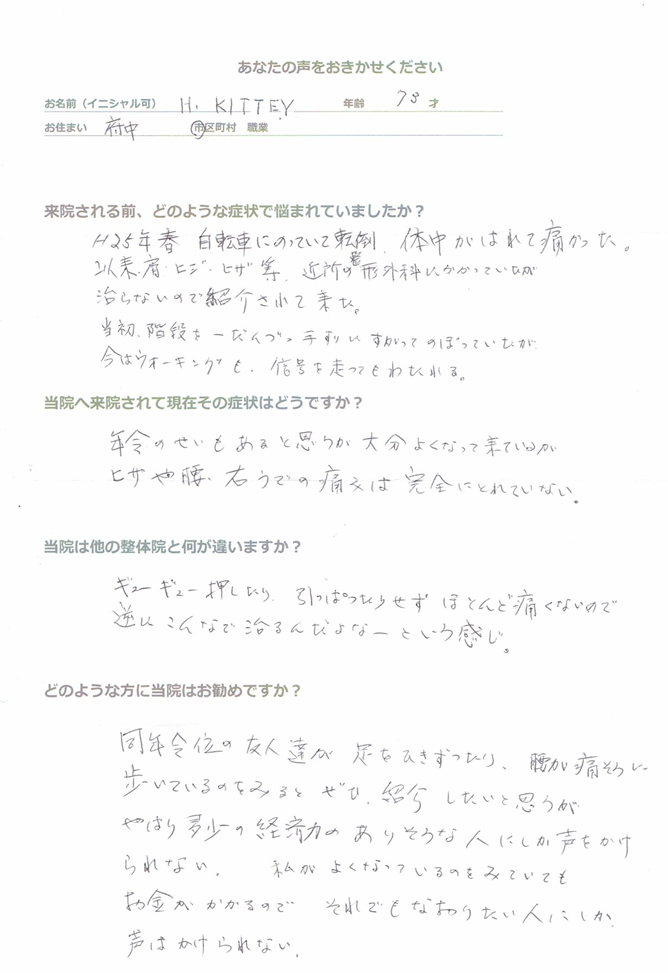 あなたの声をおきかせください
お名前（イニシャル可） H. KITTEY 年齢 73 才
お住まい 府中 市区町村 職業
来院される前、どのような症状で悩まれていましたか？
H25年春 自転車にのっていて転倒、体中がはれて痛かった。
以来、肩・ヒジ・ヒザ等、近所の整形外科にかかっていたが
治らないので紹介されて来た。
当初、階段を一だんづつ手すりにすがってのぼっていたが
今はウォーキングも、信号を走ってもわたれる。
当院へ来院されて現在その症状はどうですか？
年令のせいもあると思うが大分よくなって来ているが
ヒザや腰、右うでの痛みは完全にとれていない。
当院は他の整体院と何が違いますか？
ギューギュー押したり、引っぱったりせずほとんど痛くないので
逆にこんなで治るんだよなーという感じ。
どのような方に当院はお勧めですか？
同年令位の友人達が足をひきずったり、腰が痛そうに
歩いているのをみるとぜひ、紹介したいと思うが
やはり多少の経済力のありそうな人にしか声をかけ
られない。 私がよくなっているのをみていても
お金がかかるので それでもなおりたい人にしか
声はかけられない。